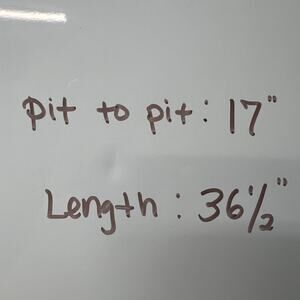 pit to pit: 17"
Length: 36½"